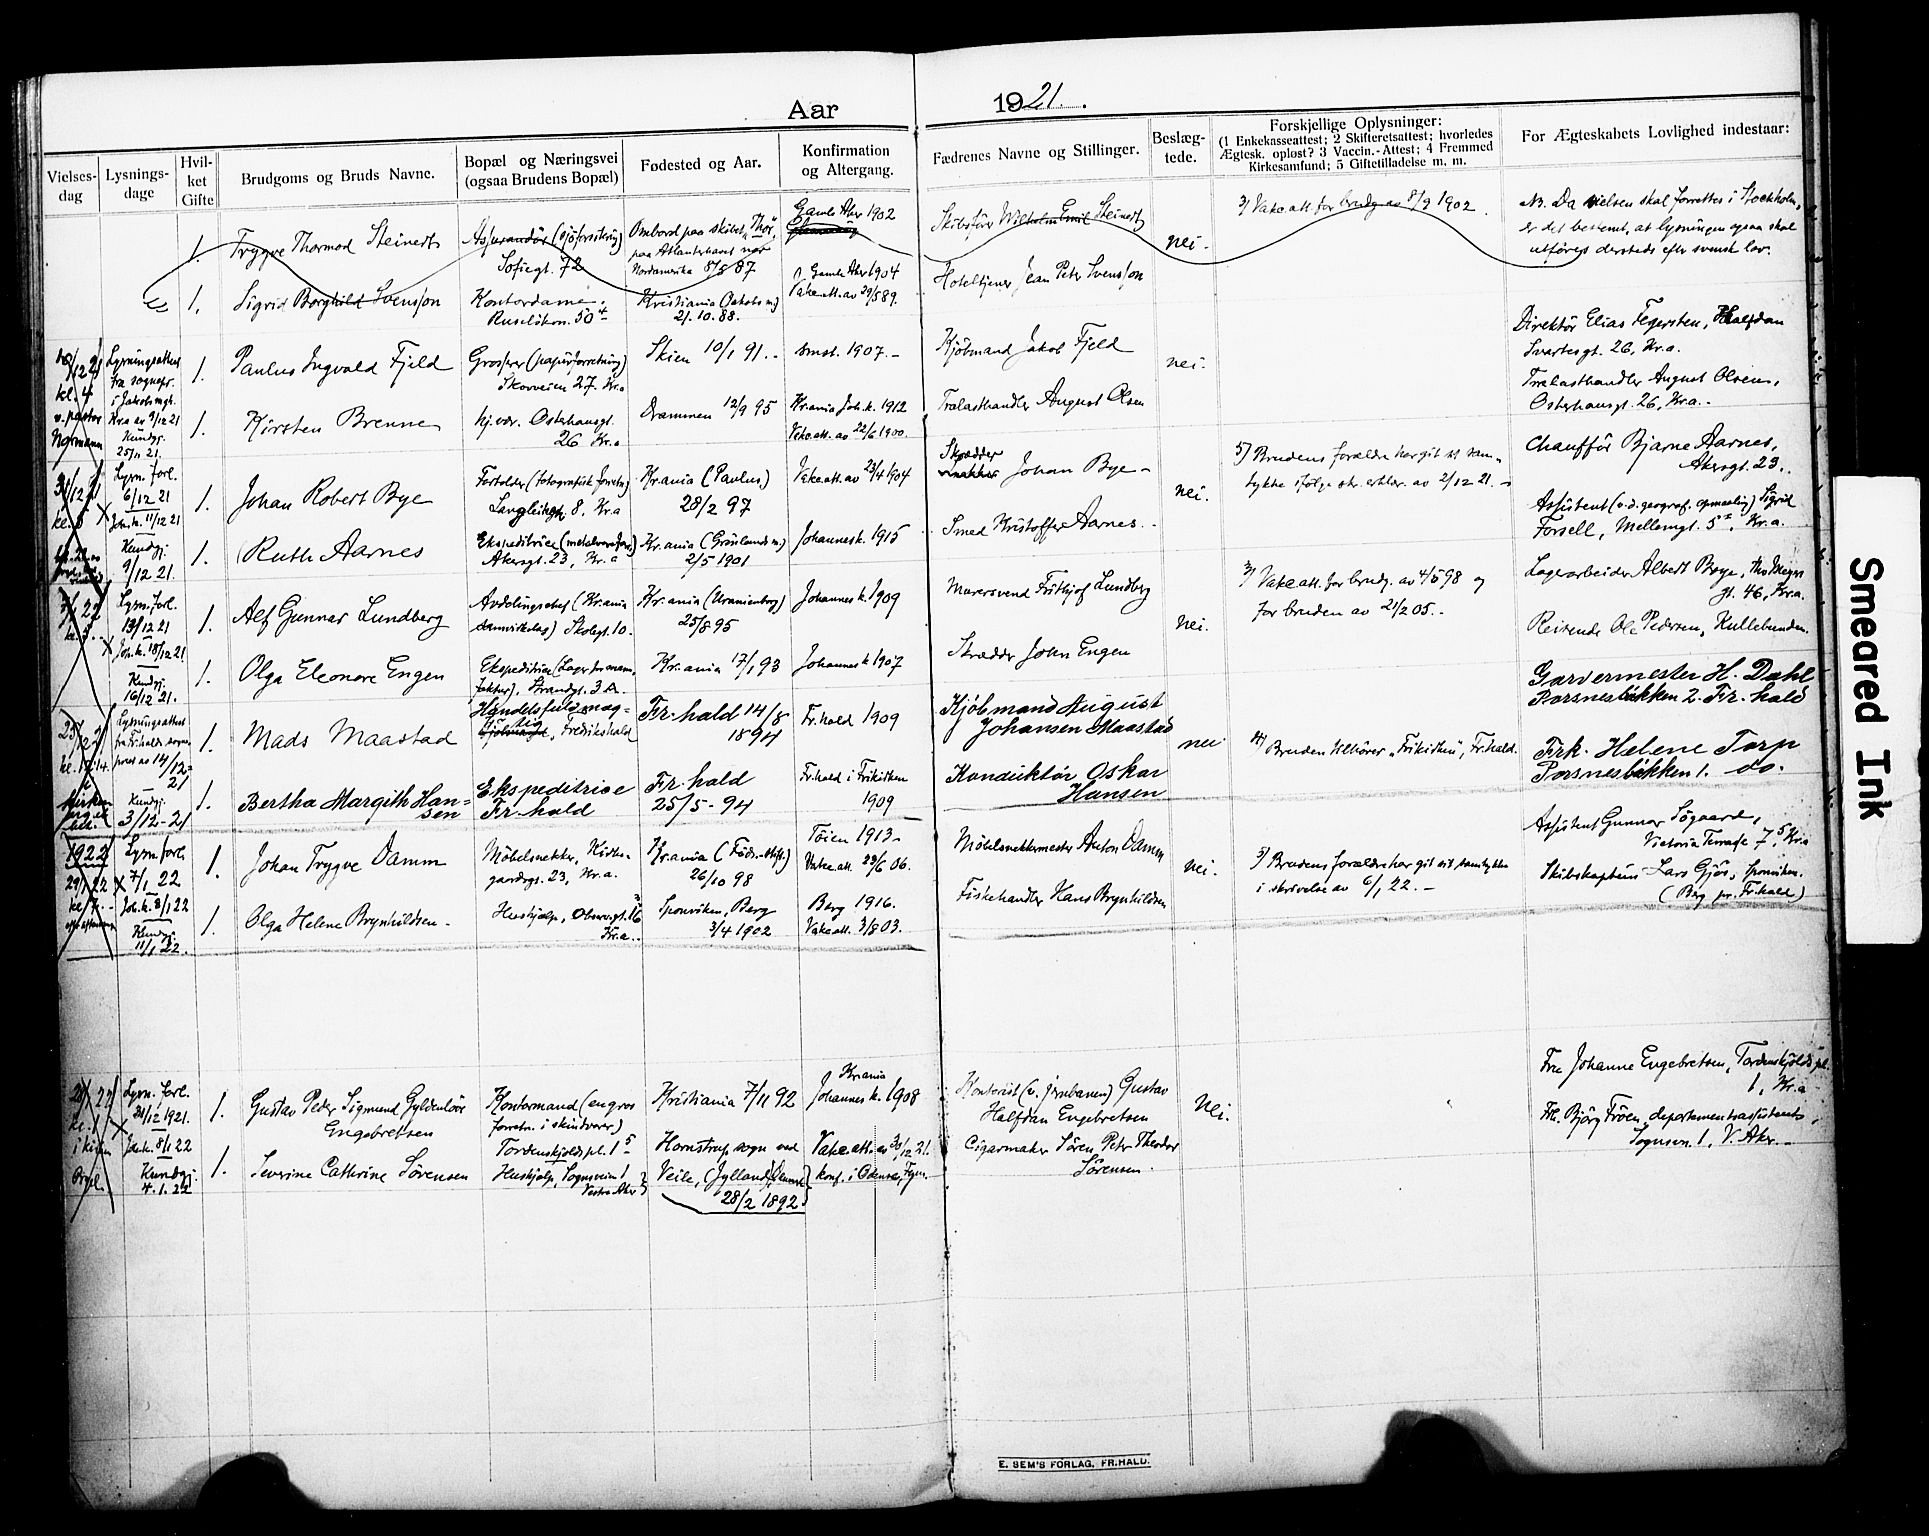 Aar 1921.
Vielses-
dag
Lysnings-
dage
Hvil-
ket
Gifte
Brudgoms og Bruds Navne.
Bopæl og Næringsvei
(ogsaa Brudens Bopæl)
Fødested og Aar.
Konfirmation
og Altergang.
Fædrenes Navne og Stillinger.
Beslæg-
tede.
Forskjellige Oplysninger:
(1 Enkekasseattest; 2 Skifteretsattest; hvorledes
Ægtesk. opløst? 3 Vaccin.-Attest; 4 Fremmed
Kirkesamfund; 5 Giftetilladelse m. m.
For Ægteskabets Lovlighed indestaar:
1.
Trygve Thormod Steinert
Assurandör (sjöforsikring)
Sofiegt. 72
Ombord paa skibet "Thor",
paa Atlanterhavet nær
Nordamerika 8/5 87
Gamle Aker 1902
Skibsförer Wilhelm Emil Steinert
nei.
3) Vakc.att. for brudg. av 8/9 1902.
N.B. Da vielsen skal forrettes i Stockholm,
er det bestemt, at lysningen ogsaa skal
utföres dersteds efter svensk lov.
1.
Sigrid Borghild Svensson
Kontordame.
Ruselökvn. 50 4
Kristiania (Jakobs m.)
21.10.88.
Gamle Aker 1904
Vakc.att. av 29/5 89.
Hoteltjener Jean Peter Svensson
12 21
kl. 4
v. pastor
Normann
Lysningsattest
fra sognepr.
i Jakob mgt.
Kr.a av 9/12 21
Kundgj.
25/11 21.
1.
Paulus Ingvald Fjeld
Grosser (papirforretning)
Skovveien 27. Kr.a
Skien 10/1 91.-
smst. 1907.-
Kjöbmand Jakob Fjeld
nei.
Direktör Elias Fegersten, Halfdan
Svartesgt. 26, Kr.a.
1.
Kirsten Brenne
hj.vær. Osterhausgt.
26 Kr.a
Drammen 12/9 95
Kr.ania Joh.k. 1912
Vakc.att. av 22/6 1900.
Trælasthandler August Olsen
Trælasthandler August Olsen,
Osterhausgt. 26, Kr.a.-
31/12 21
kl. 5
Lysn. forl.
6/12 21
Joh.k. 11/12 21
Kundgj.
9/12 21.
1.
Johan Robert Bye
Forlolder (fotografisk forretn.)
Langleikgt 8, Kr.a
Kr.ania (Paulus)
28/2 97
Vakc.att. av 23/4 1904
Skrædder
Johan Bye -
nei.
5) Brudens forældre har git sit sam-
tykke ifölge skr. erklær. av 2/12 21.-
Chauffør Bjarne Aarnes,
Akersgt. 23..
1.
Ruth Aarnes
Ekspeditrice (metalvareforr.)
Akersgt. 23, Kr.a
Kr.ania (Grönlands m.)
2/5 1901
Johannesk. 1915
Smed Kristoffer Aarnes.-
Assistent (v.d. geograf. opmaaling) Sigrid
Forsell, Mellemgt. 5 , Kr.a.
22
kl. 3.
Lysn. forl.
13/12 21
Joh.k. 18/12 21
Kundgj.
16/12 21.
1.
Alf Gunnar Lundberg
Avdelingschef (Kr.ania
) Skolegt. 10.
Kr.ania (Uranienborg)
25/8 95
Johannes k. 1909
Murersvend Frithjof Lundberg
nei.
3) Vakc.att. for brudg. av 4/5 98 og
for bruden av 21/2 05.-
Lagerarbeider Albert Berge, Ths Meyers
gt. 46, Kr.a.
1.
Olga Eleonore Engen
Ekspeditrice
), Strandgt. 3 A.
Kr.ania 17/1 93
Johannes k 1907
Skrædder John Engen
Reisende Ole Pedersen, Kullebunden.
Lysningsattest
fra Fr.halds sogne-
prest av 14/12-
21
Kundgj.
3/12-21
1.
Mads Maastad
Handelsfuldmæg-
tig, Fredrikshald
Fr.hald 14/8
1894
Fr.hald 1909
Kjöbmand August
Johansen Maastad
nei
4) Bruden tilhører "Frikirken", Fr.hald.
Garvermester H. Dahl
Porsnesbakken 2. Fr.hald
1.
Bertha Margith Han-
sen
Ekspeditrice
Fr.hald
Fr.hald
25/5-94
Fr.hald i Frikirken
1909
Konduktör Oskar
Hansen
Frk. Helene Torp
Porsnesbakken 1. do.
1922
29/1 22
Lysn. forl.
7/1 22
Joh.k. 8/1 22
Kundgj.
11/1 22.
1.
Johan Trygve Damm
Möbelsnekker, Kirke-
gaardsgt. 23, Kr.a.
Kr.ania (Föds.stift.)
26/10 98
Töien 1913-
Vakc.att. 29/6 06.
Möbelsnekkermester Anton Damm
nei.
5) Brudens forældre har git sit samtykke
i skrivelse av 6/1 22.-
Assistent Gunnar Sögaard,
Victoria Terrasse 7 5, Kr.a
1.
Olga Helene Brynhildsen-
Hushjælp, Observ.gt. 16
Kr.a..
Sponviken, Berg
3/4 1902
Berg 1916.
Vakc.att. 3/8 03.
Fiskehandler Hans Brynhildsen
Skibskaptein Lars Gjös, Sponviken.
(Berg pr. Fr.hald)
i kirken
Orgel.
Lysn. forl.
21/12 1921.
Joh.k. 8/1 22
Kundgj.
4.1.22
1.
Gustav Peder Sigmund Gyldenlöve
Engebretsen
Kontormand (en gros
forretn. i skindvarer)
Tordenskjolds pl. 1 5
Kristiania 7/11 92
Kr.ania
Johannes k. 1908
Kontorist (v. jernbanen) Gustav
Halfdan Engebretsen
nei.
Fru Johanne Engebretsen, Tordenskjolds pl.
1, Kr.a
1.
Severine Cathrine Sörensen
Hushjælp, Sognsvein 1
Vestre Aker
Hornstrup sogn ved
Veile, (Jylland) Danmark
28/2 1892
Vakc.att. av 30/12 21.
konf. i Odense, Fyen.
Cigarmaker Sören Peter Theodor
Sörensen.
Frk. Björg Fröen, departementsassistent,
Sognsvn 1, V. Aker.-
E. SEM'S FORLAG, FR.HALD.
Smeared Ink